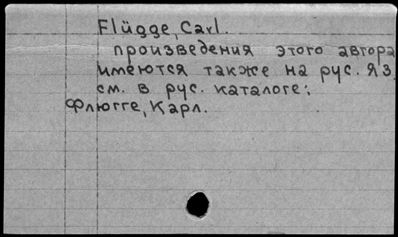 Flügge, Carl.
произведения этого автора
имеются также на рус. яз.
см. в рус. каталоге:
Флюгге, Карл.